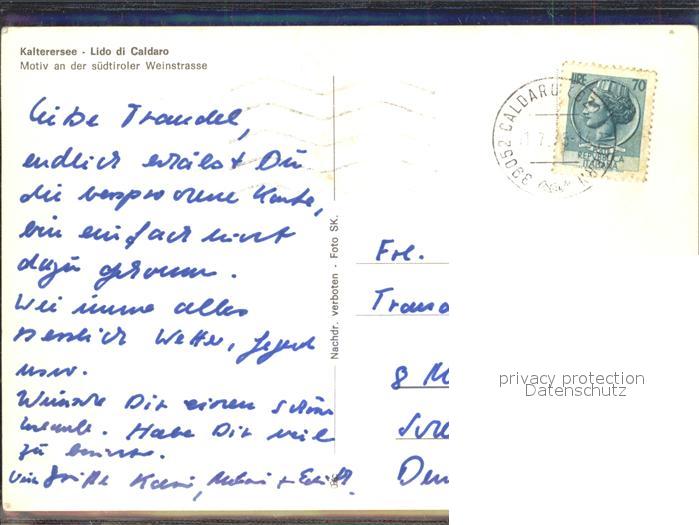 Kalterersee - Lido di Caldaro
Motiv an der südtiroler Weinstrasse
Liebe Traudel,
endlich erhälst Du
die versprochene Karte,
bin einfach nicht
dazu gekommen.
Wie immer alles
herrlich Wetter, Jegend
usw.
Wünsche Dir einen schönen
Urlaub. Habe Dir viel
zu
Viele Grüße Karin, + Edith
Nachdr. verboten - Foto SK.
LIRE 70
REPUBBLICA
ITALIANA
39052 CALDARO
Frl.
8 M
Den
privacy protection
Datenschutz